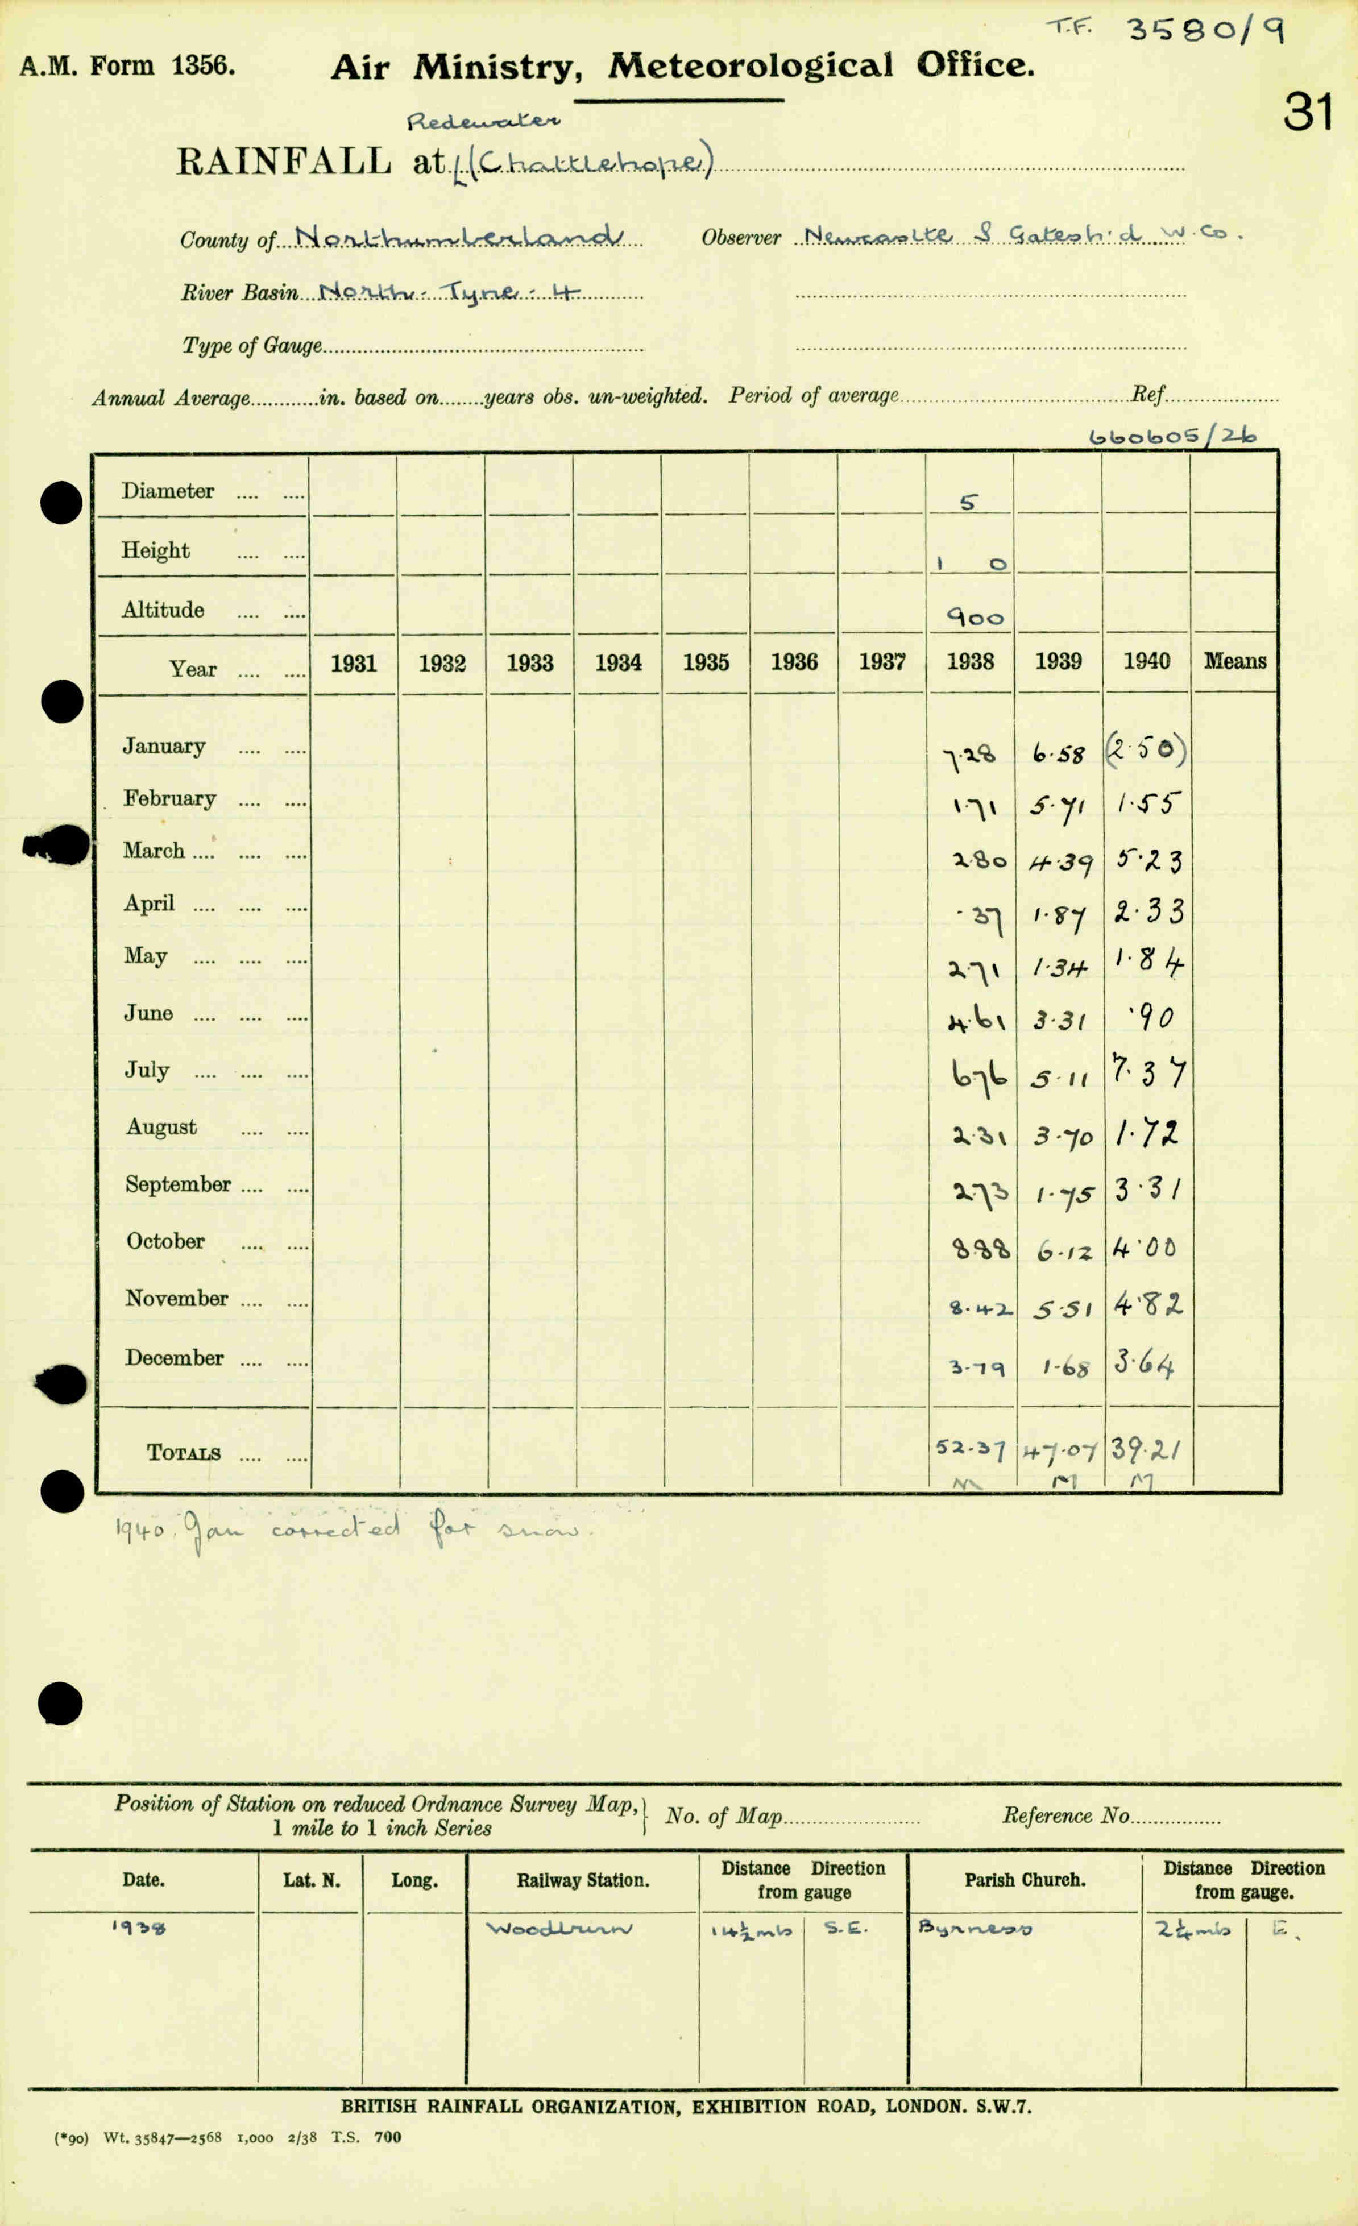 T.F. 3580/9
A.M. Form 1356. Air Ministry, Meteorological Office.
31
Redewater
RAINFALL at (Chattlehope)
County of Northumberland Observer Newcastle & Gatesh'd W. Co.
River Basin North - Tyne - 4
Type of Gauge
Annual Average in. based on years obs. un-weighted. Period of average Ref.
660605/26
Diameter .... .... 5
Height .... .... 1 0
Altitude .... .... 900
Year .... .... 1931 1932 1933 1934 1935 1936 1937 1938 1939 1940 Means
January .... .... 7.28 6.58 (2.50)
February .... .... 1.71 5.71 1.55
March .... .... .... 2.80 4.39 5.23
April .... .... .... .37 1.87 2.33
May .... .... .... 2.71 1.34 1.84
June .... .... .... 4.61 3.31 .90
July .... .... .... 6.76 5.11 7.37
August .... .... 2.31 3.70 1.72
September .... .... 2.73 1.75 3.31
October .... .... 8.88 6.12 4.00
November .... .... 8.42 5.51 4.82
December .... .... 3.79 1.68 3.64
TOTALS .... .... 52.37 47.07 39.21
M M M
1940. Jan corrected for snow.
Position of Station on reduced Ordnance Survey Map, 1 mile to 1 inch Series } No. of Map Reference No.
Date. Lat. N. Long. Railway Station. Distance Direction from gauge Parish Church. Distance Direction from gauge.
1938 Woodburn 14½mls S.E. Byrness 2¼mls E.
BRITISH RAINFALL ORGANIZATION, EXHIBITION ROAD, LONDON. S.W.7.
(*90) Wt. 35847—2568 1,000 2/38 T.S. 700